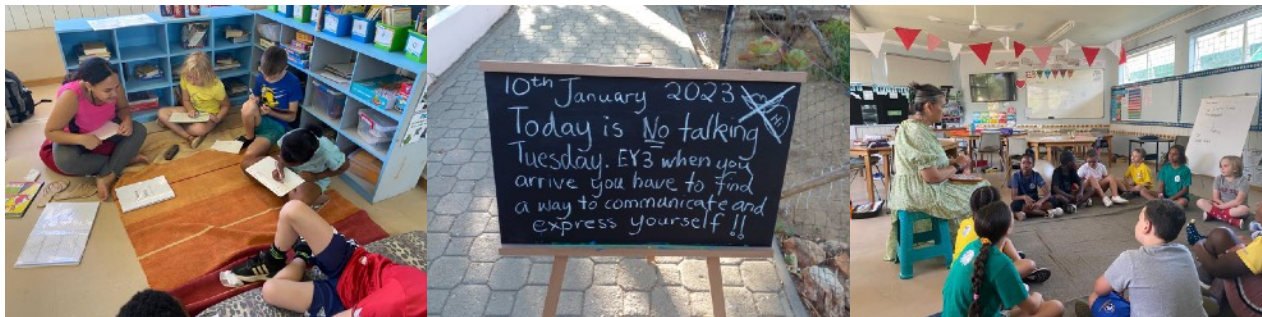 10th January 2023
Today is No talking
Tuesday. EY3 when you
arrive you have to find
a way to communicate and
express yourself !!